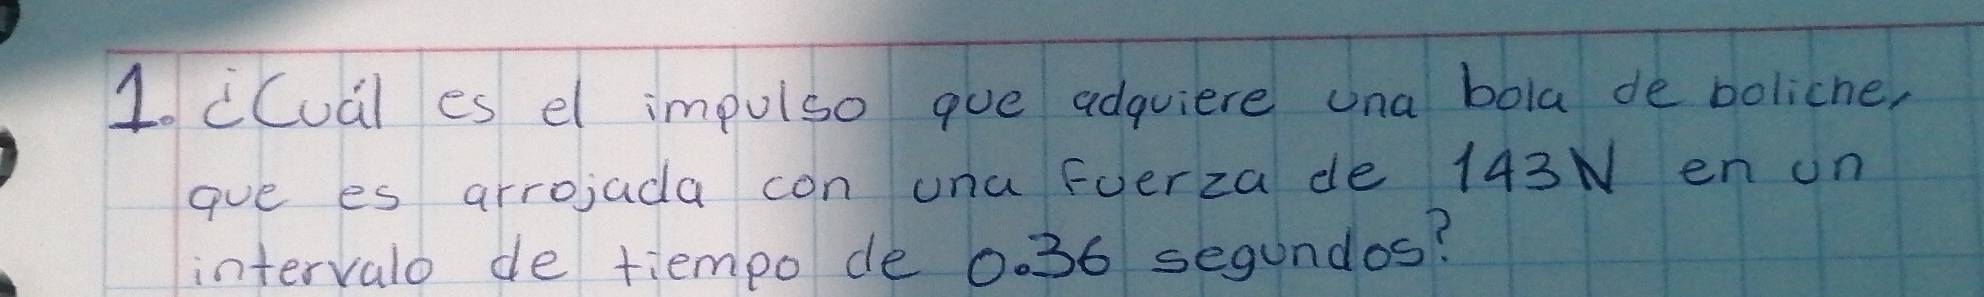 1. ¿Cuál es el impulso que adquiere una bola de boliche,
que es arrojada con una fuerza de 143N en un
intervalo de tiempo de 0.36 segundos?